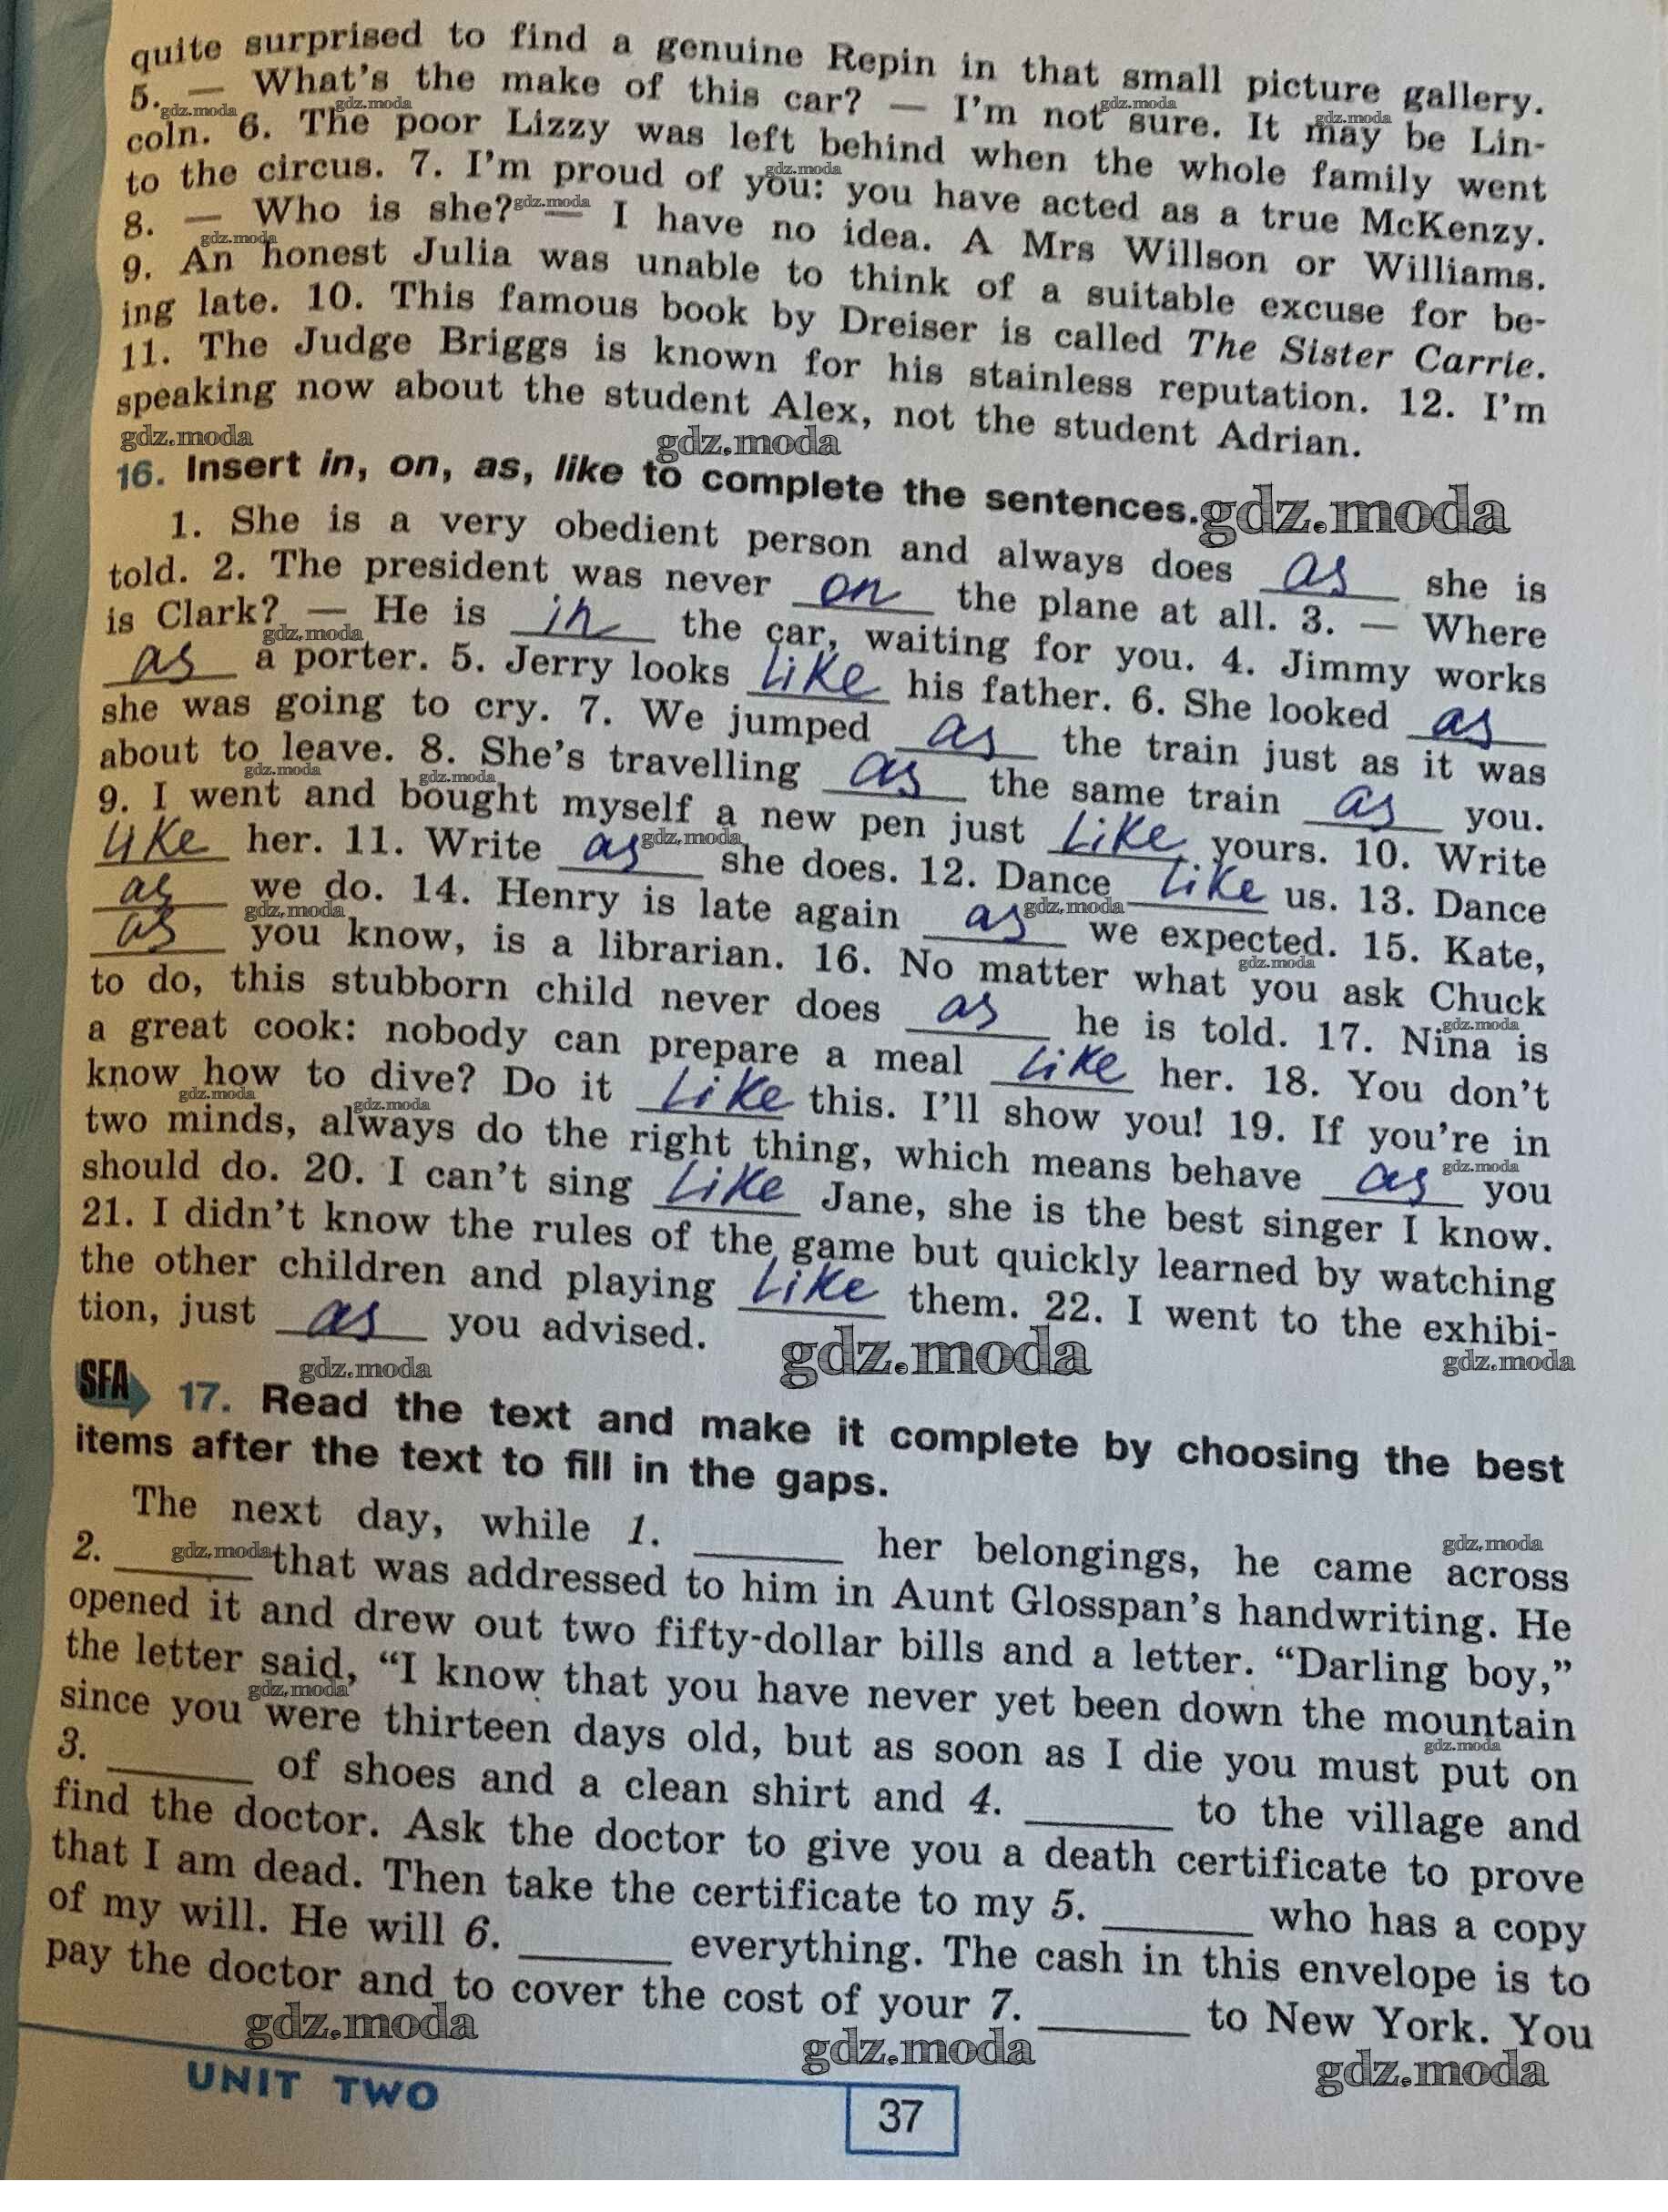 quite surprised to find a genuine Repin in that small picture gallery.
5. — What's the make of this car? — I'm not sure. It may be Lin-
coln. 6. The poor Lizzy was left behind when the whole family went
to the circus. 7. I'm proud of you: you have acted as a true McKenzy.
8. — Who is she? — I have no idea. A Mrs Willson or Williams.
9. An honest Julia was unable to think of a suitable excuse for be-
ing late. 10. This famous book by Dreiser is called The Sister Carrie.
11. The Judge Briggs is known for his stainless reputation. 12. I'm
speaking now about the student Alex, not the student Adrian.
gdz.moda gdz.moda
16. Insert in, on, as, like to complete the sentences. gdz.moda
1. She is a very obedient person and always does as she is
told. 2. The president was never on the plane at all. 3. — Where
is Clark? — He is in the car, waiting for you. 4. Jimmy works
as a porter. 5. Jerry looks like his father. 6. She looked as
she was going to cry. 7. We jumped as the train just as it was
about to leave. 8. She's travelling as the same train as you.
9. I went and bought myself a new pen just like yours. 10. Write
like her. 11. Write as she does. 12. Dance like us. 13. Dance
as we do. 14. Henry is late again as we expected. 15. Kate,
as you know, is a librarian. 16. No matter what you ask Chuck
to do, this stubborn child never does as he is told. 17. Nina is
a great cook: nobody can prepare a meal like her. 18. You don't
know how to dive? Do it like this. I'll show you! 19. If you're in
two minds, always do the right thing, which means behave as you
should do. 20. I can't sing like Jane, she is the best singer I know.
21. I didn't know the rules of the game but quickly learned by watching
the other children and playing like them. 22. I went to the exhibi-
tion, just as you advised.
gdz.moda gdz.moda gdz.moda
SFA 17. Read the text and make it complete by choosing the best
items after the text to fill in the gaps.
The next day, while 1. ______ her belongings, he came across
2. ______ that was addressed to him in Aunt Glosspan's handwriting. He
opened it and drew out two fifty-dollar bills and a letter. "Darling boy,"
the letter said, "I know that you have never yet been down the mountain
since you were thirteen days old, but as soon as I die you must put on
3. ______ of shoes and a clean shirt and 4. ______ to the village and
find the doctor. Ask the doctor to give you a death certificate to prove
that I am dead. Then take the certificate to my 5. ______ who has a copy
of my will. He will 6. ______ everything. The cash in this envelope is to
pay the doctor and to cover the cost of your 7. ______ to New York. You
gdz.moda gdz.moda gdz.moda
UNIT TWO
37